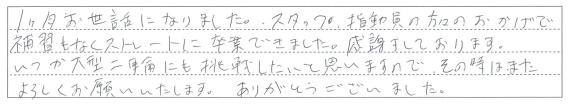 1ヶ月お世話になりました。スタッフ、指導員の方々のおかげで
補習もなくストレートに卒業できました。感謝しております。
いつか大型二輪にも挑戦したいと思いますので、その時はまた
よろしくお願いいたします。 ありがとうございました。